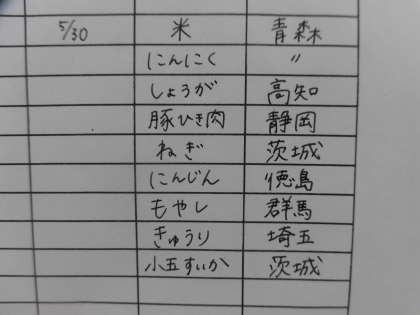 5/30 米 青森
にんにく 〃
しょうが 高知
豚ひき肉 静岡
ねぎ 茨城
にんじん 徳島
もやし 群馬
きゅうり 埼玉
小玉すいか 茨城